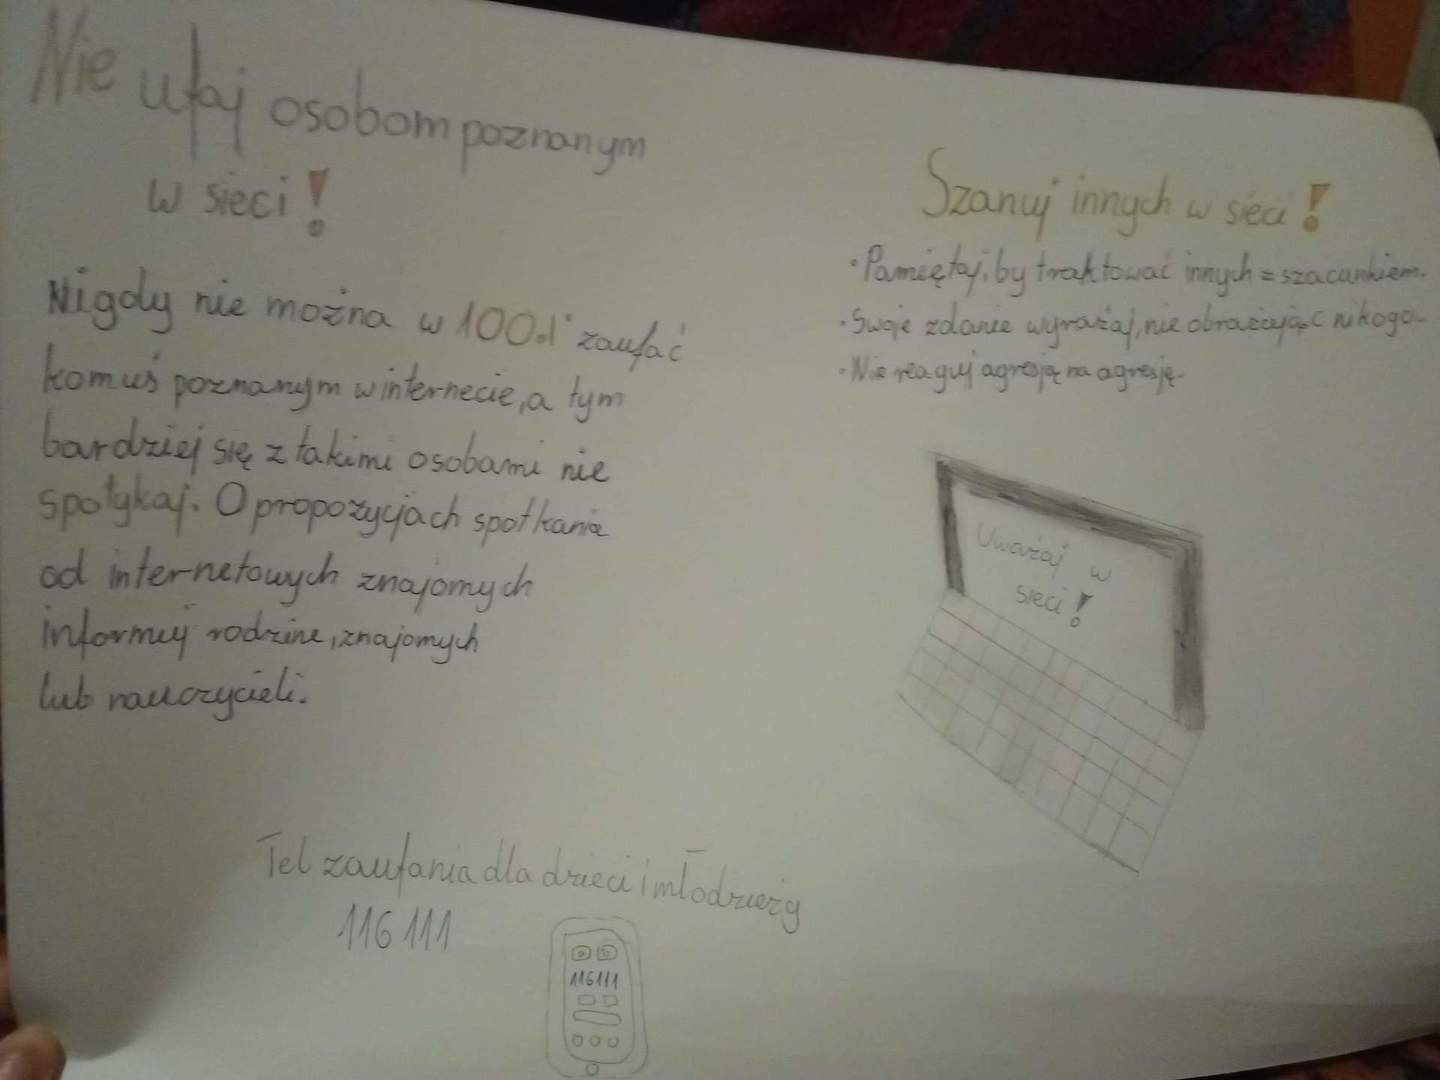 Nie ufaj osobom poznanym
w sieci!
Nigdy nie można w 100% zaufać
komuś poznanym w internecie, a tym
bardziej się z takimi osobami nie
spotykaj. O propozycjach spotkania
od internetowych znajomych
informuj rodzine, znajomych
lub nauczycieli.
Szanuj innych w sieci!
• Pamiętaj, by traktować innych z szacankiem.
• Swoje zdanie wyrażaj, nie obrażając nikogo.
• Nie reaguj agresją na agresję.
Uważaj w
sieci!
Tel zaufania dla dzieci i młodzieży
116 111
116111